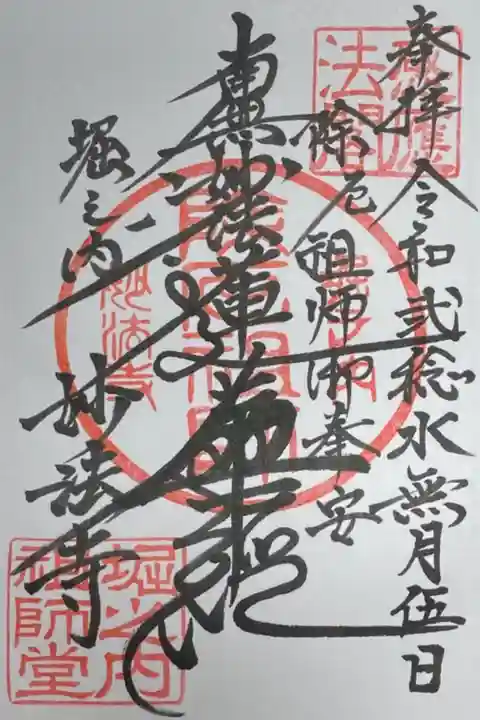 奉拝 令和弐稔水無月伍日
除厄祖師御奉安
南無妙法蓮華経
堀之内 妙法寺
除厄祖師
妙法寺
堀之内
祖師堂